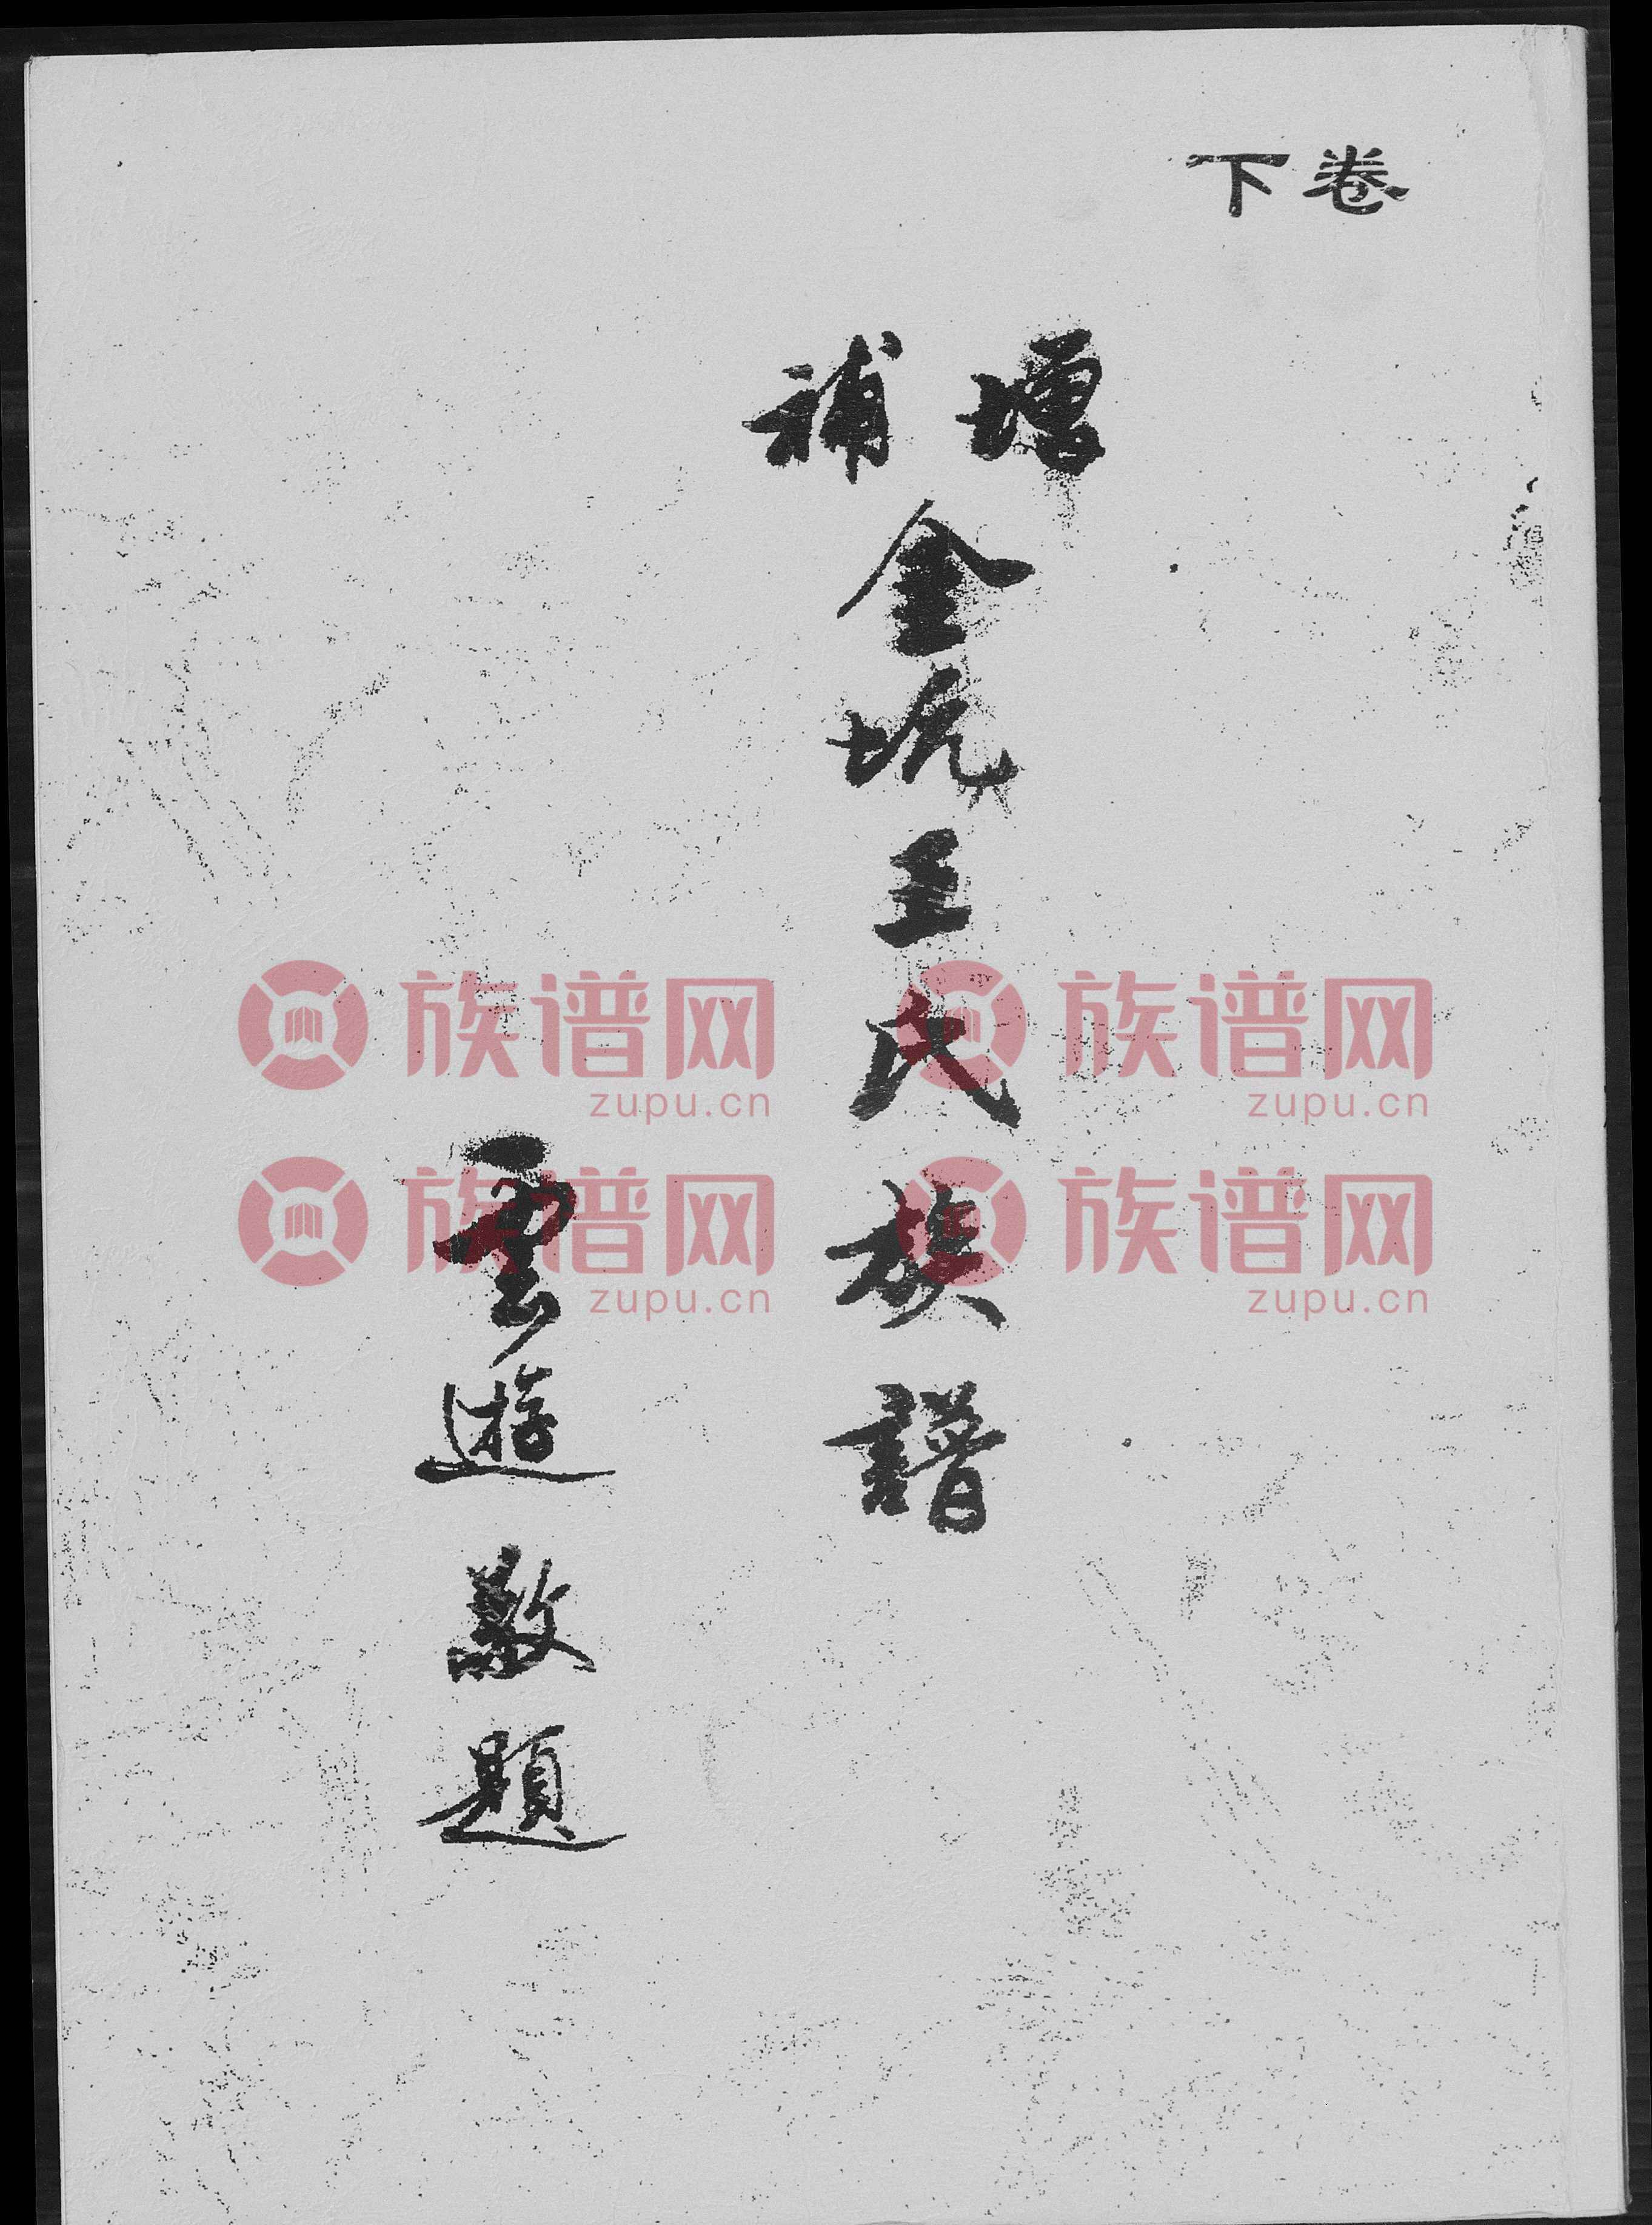 卷下
增補
金坑王氏族譜
雲遊敬題
族谱网 族谱网
zupu.cn zupu.cn
族谱网 族谱网
zupu.cn zupu.cn